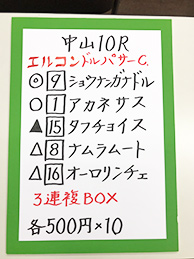 中山10R
エルコンドルパサーC.
◎9ショウナンガナドル
○1アカネサス
▲15タフチョイス
△8ナムラムート
△16オーロリンチェ
3連複BOX
各500円×10